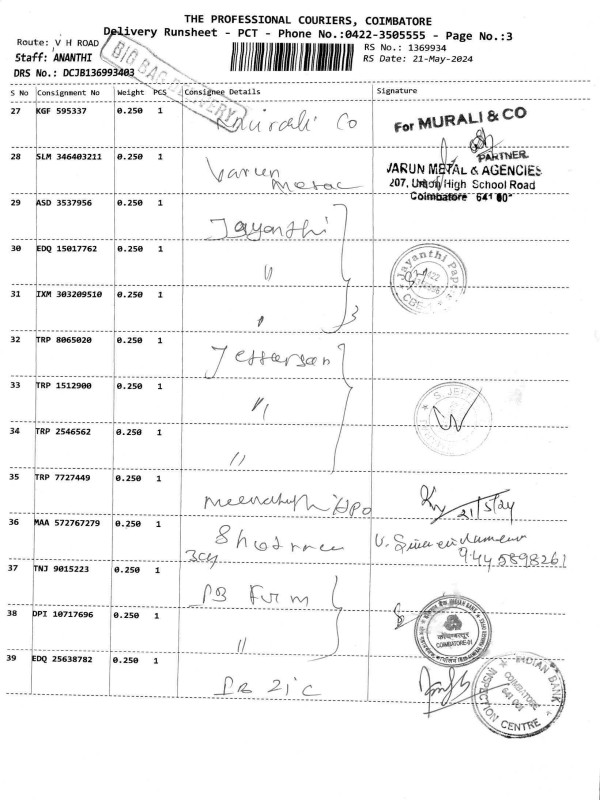 THE PROFESSIONAL COURIERS, COIMBATORE
Delivery Runsheet - PCT - Phone No.:0422-3505555 - Page No.:3
Route: V H ROAD
RS No.: 1369934
Staff: ANANTHI
RS Date: 21-May-2024
DRS No.: DCJB136993403
BIG BAG DELIVERY
S No Consignment No Weight PCS Consignee Details Signature
27 KGF 595337 0.250 1 Murali Co
For MURALI & CO
PARTNER
28 SLM 346403211 0.250 1 Varun
Metal
VARUN METAL & AGENCIES
207, Union High School Road
Coimbatore
29 ASD 3537956 0.250 1 Jayanthi
30 EDQ 15017762 0.250 1 "
Jayanthi
31 IXM 303209510 0.250 1 " 3
32 TRP 8065020 0.250 1 Jefferson
33 TRP 1512900 0.250 1 "
S. JEFF
34 TRP 2546562 0.250 1 "
35 TRP 7727449 0.250 1
21/5/24
36 MAA 572767279 0.250 1
9445898261
37 TNJ 9015223 0.250 1
38 DPI 10717696 0.250 1 "
INDIAN BANK
COIMBATORE-01
39 EDQ 25638782 0.250 1
INDIAN BANK
COIMBATORE
641 001
INSPECTION CENTRE